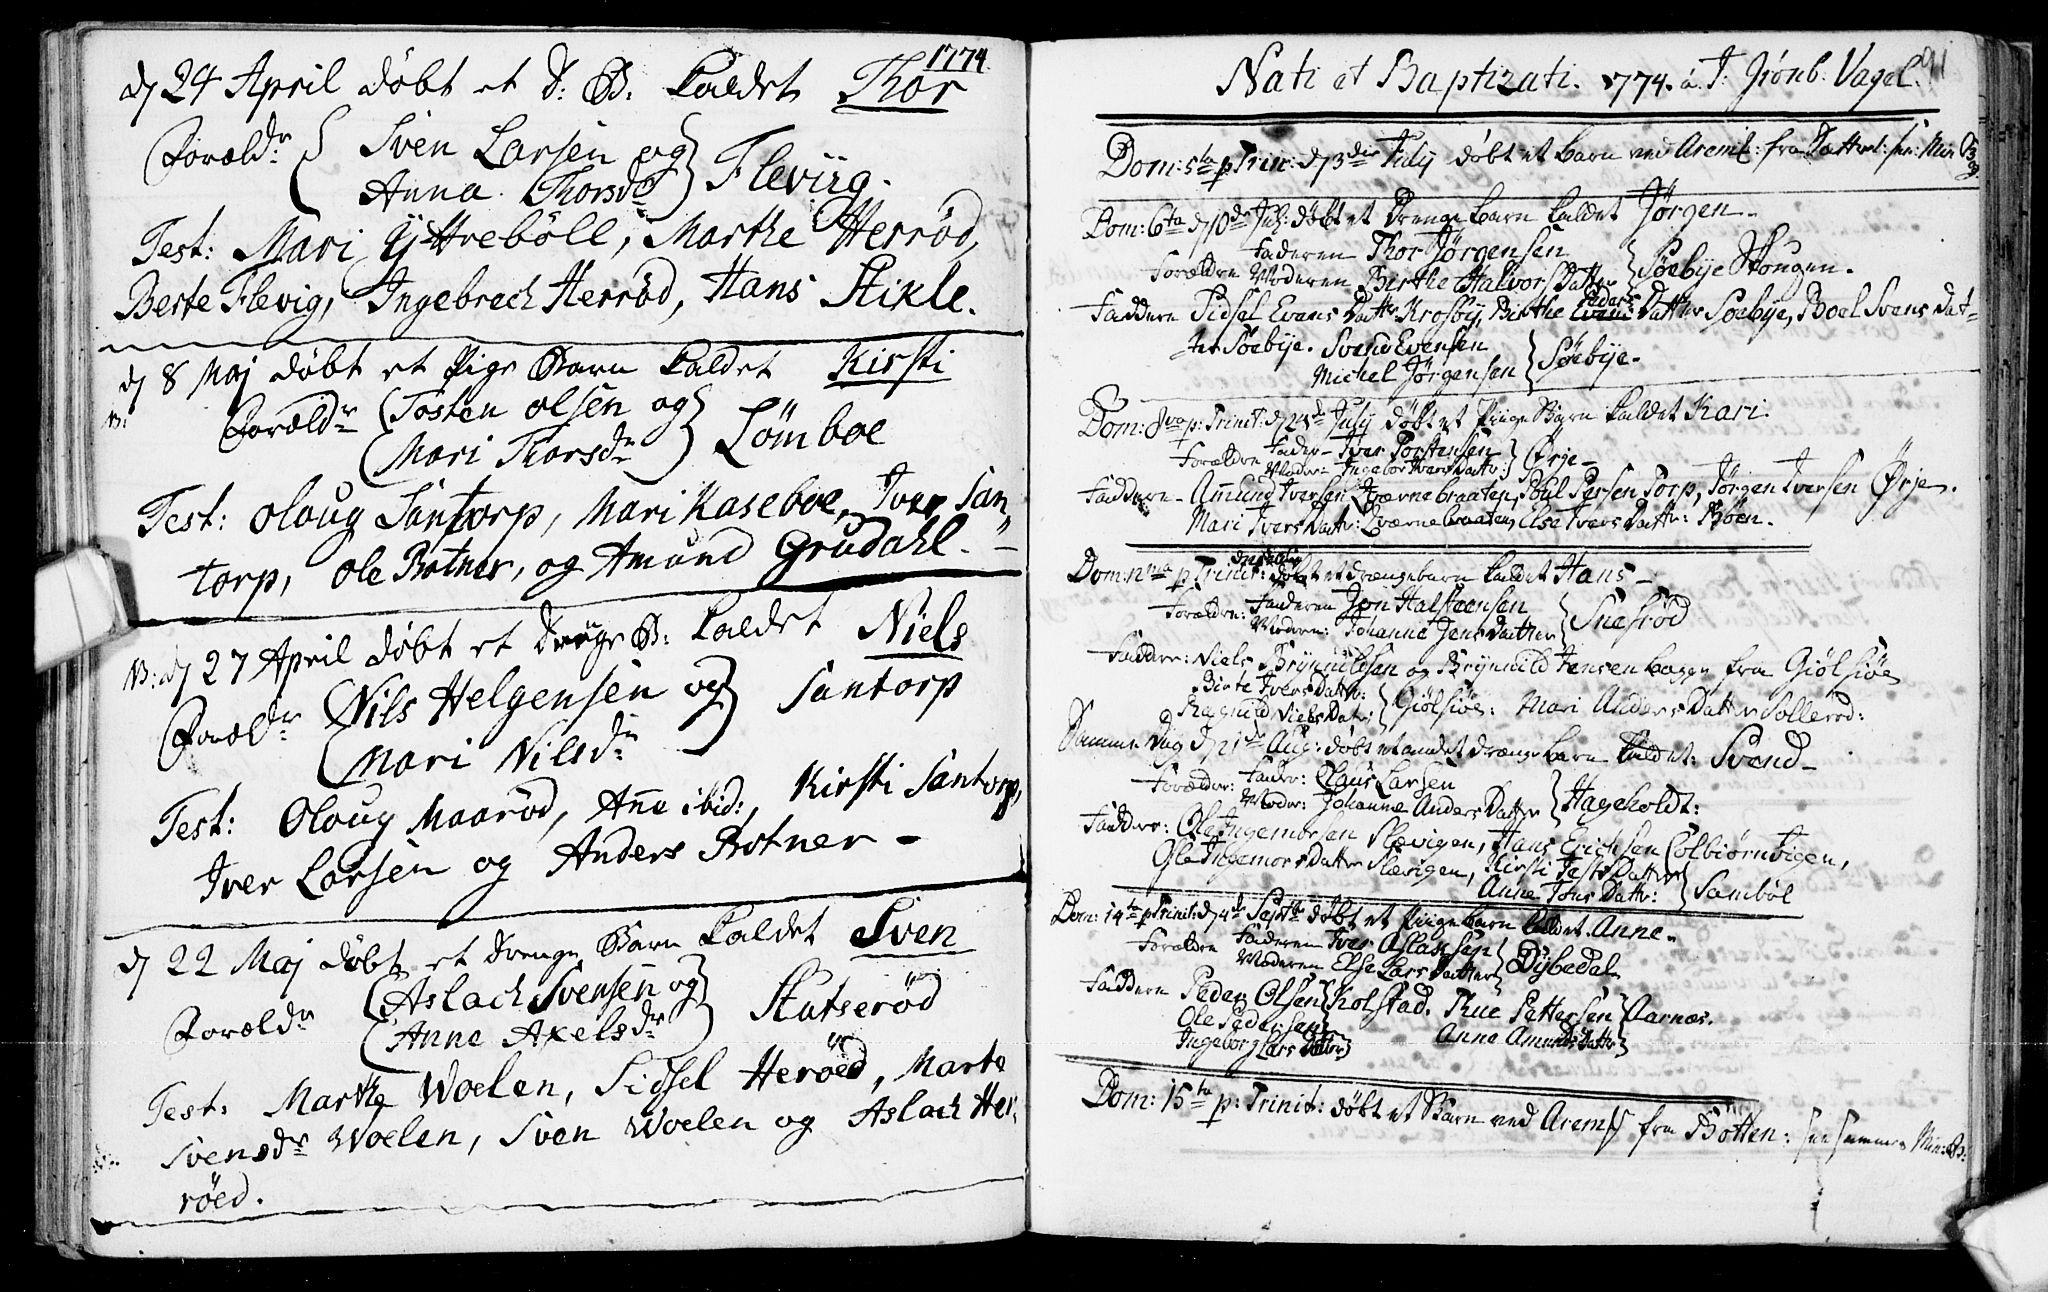 1774.
d 24 April döbt et D: B: kaldet Thor
Foræld:r Sven Larsen og
Anna Thorsd:r Flevig.
Test: Mari Ÿttreböll, Marthe Herröd,
Berte Flevig, Ingebrech Herröd, Hans Stikle.
d 8 Maj döbt et Pige Barn kaldet Kirsti
B:
Foræld:r Tosten Olsen og
Mari Thorsd:r Lömboe
Test: Oloug Santorp, Mari Kaseboe, Iver San,,
torp, Ole Botner, og Amund Grudahl.
B: d 27 April döbt et Drænge B: kaldet Niels
Foræld:r Nils Helgensen og
Mari Nilsd:r Santorp
Test: Oloug Maaröd, Ane ibid:, Kirsti Santorp,
Iver Larsen og Anders Botner -
d 22 Maj döbt et Drenge Barn kaldet Sven
Foræld:r Aslach Svensen og
Anne Axelsd:r Skutseröd
Test: Marthe Woelen, Sidsel Heröed, Marte
Svensd:r Woelen, Sven Woelen og Aslach Her,
röed.
91
Nati et Baptizati. 1774. á J: Grönb: Vagel.
Dom: 5ta p Trin: d 3die July döbt et barn ved Aremk: fra
Dom: 6ta d 10de July: döbt et Drenge barn kaldet Jörgen.
Forældre Faderen Thor Jörgensen
Moderen Birthe Halvors Datter Söebye Skougen.
Faddere Sidsel Evens Datt: Krosby, Birthe Peders Datter Söebye, Boel Svens Dat=
ter Söebye. Svend Evensen
Michel Jörgensen Söebye.
Dom: 8va p: Trinit: d 24de July döbt et Piige Barn kaldet Kari.
Forældre Fader- Iver Torstensen
Moder- Ingebor Ivers Dattr: Örje-
Faddere- Amund Iversen Qværnebraaten, Poul Persen Torp, Jörgen Iversen Örje.
Mari Ivers Dattr: Qværnebraaten, Else Ivers Dattr: Böen.
Dom: p Trinit: döbt et drængebarn kaldet Hans -
Forældre: Faderen Jon Halsteensen
Modren: Johanne Jens Datter Snesröd
Faddere: Niels Brynnildsen og Brynnild Jensen bægge fra Giölsiöe
Birte Ivers Dattr:
Ragnild Niels Datr: Giölsiöe: Mari Anders Datter Solleröd:
Samme Dag d 21de Aug: döbt et andet drænge barn kaldet: Svend -
Forældre: Fader: Claus Larsen
Moder: Johanne Anders Datter Hageholdt:
Faddere: Ole Ingemorsen Slævigen, Hans Erichsen Colbiörnvigen,
Ingemors Datter Slævigen, Kirsti Jens Datter
Anne Jons Dattr: Samböl
Dom: 14ta p Trinit: d 4de Septbr döbt et Piige barn kaldet Anne.
Forældre Faderen Iver Aslaksen
Moderen Else Lars Datter Dÿbedal
Faddere Peder Olsen Kolstad. Thue Pettersen Aarnæs.
Ole Pedersen
Anne Amunds Dattr
Ingeborg Lars Datter
Dom: 15ta p: Trinit: döbt et Barn ved Aremk fra Botten: see samme Min: B: